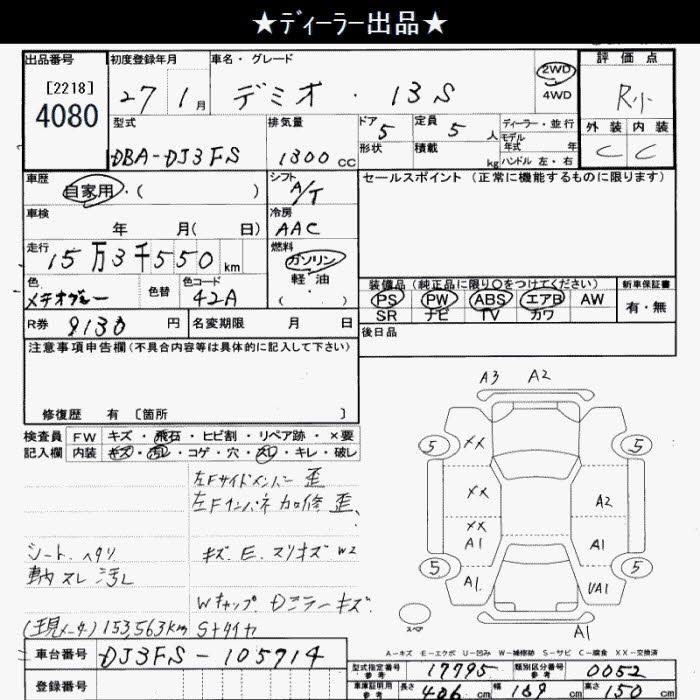 ★ディーラー出品★
出品番号 初度登録年月 車名・グレード 評価点
[2218] 4080 27 1月 デミオ ・ 13S 2WD 4WD R小
型式 排気量 ドア 5 定員 5人 ディーラー・並行 外装 内装
DBA-DJ3FS 1300cc 形状 積載 kg モデル年式 年 C C
ハンドル 左・右
車歴 自家用・( ) シフト A/T セールスポイント(正常に機能するものに限ります)
車検 年 月( 日) 冷房 AAC
走行 15万3千550km 燃料 ガソリン
軽油
色 色替 色コード 42A ・( )
装備品(純正品に限り○をつけてください) 新車保証書
PS PW ABS エアB AW 有・無
SR ナビ TV カワ
R券 9130円 名変期限 月 日 後日品
注意事項申告欄(不具合内容等は具体的に記入して下さい)
修復歴 有 [箇所 ]
A3 A2
検査員 FW キズ・飛石・ヒビ割・リペア跡・×要
記入欄 内装 キズ・汚レ・コゲ・穴・スレ・キレ・破レ
5 XX 5
左Fサイドメンバー 歪
左Fインパネ加修歪、
XX A2
XX
A1 A1
シート ヘタリ キズ.E.スリキズ W2
内スレ汚レ
5 5
A1. UA1
Wキャップ.Dミラーキズ.
(現メーター)153,563km Sタイヤ
スペア A1
A-キズ E-エクボ U-凹み W-補修跡 S-サビ C-腐食 XX-交換済
車台番号 DJ3FS-105914
型式指定番号 参考 17795 類別区分番号 参考 0052
登録番号 車庫証明用 参考 長さ 406cm 幅 169cm 高さ 150cm